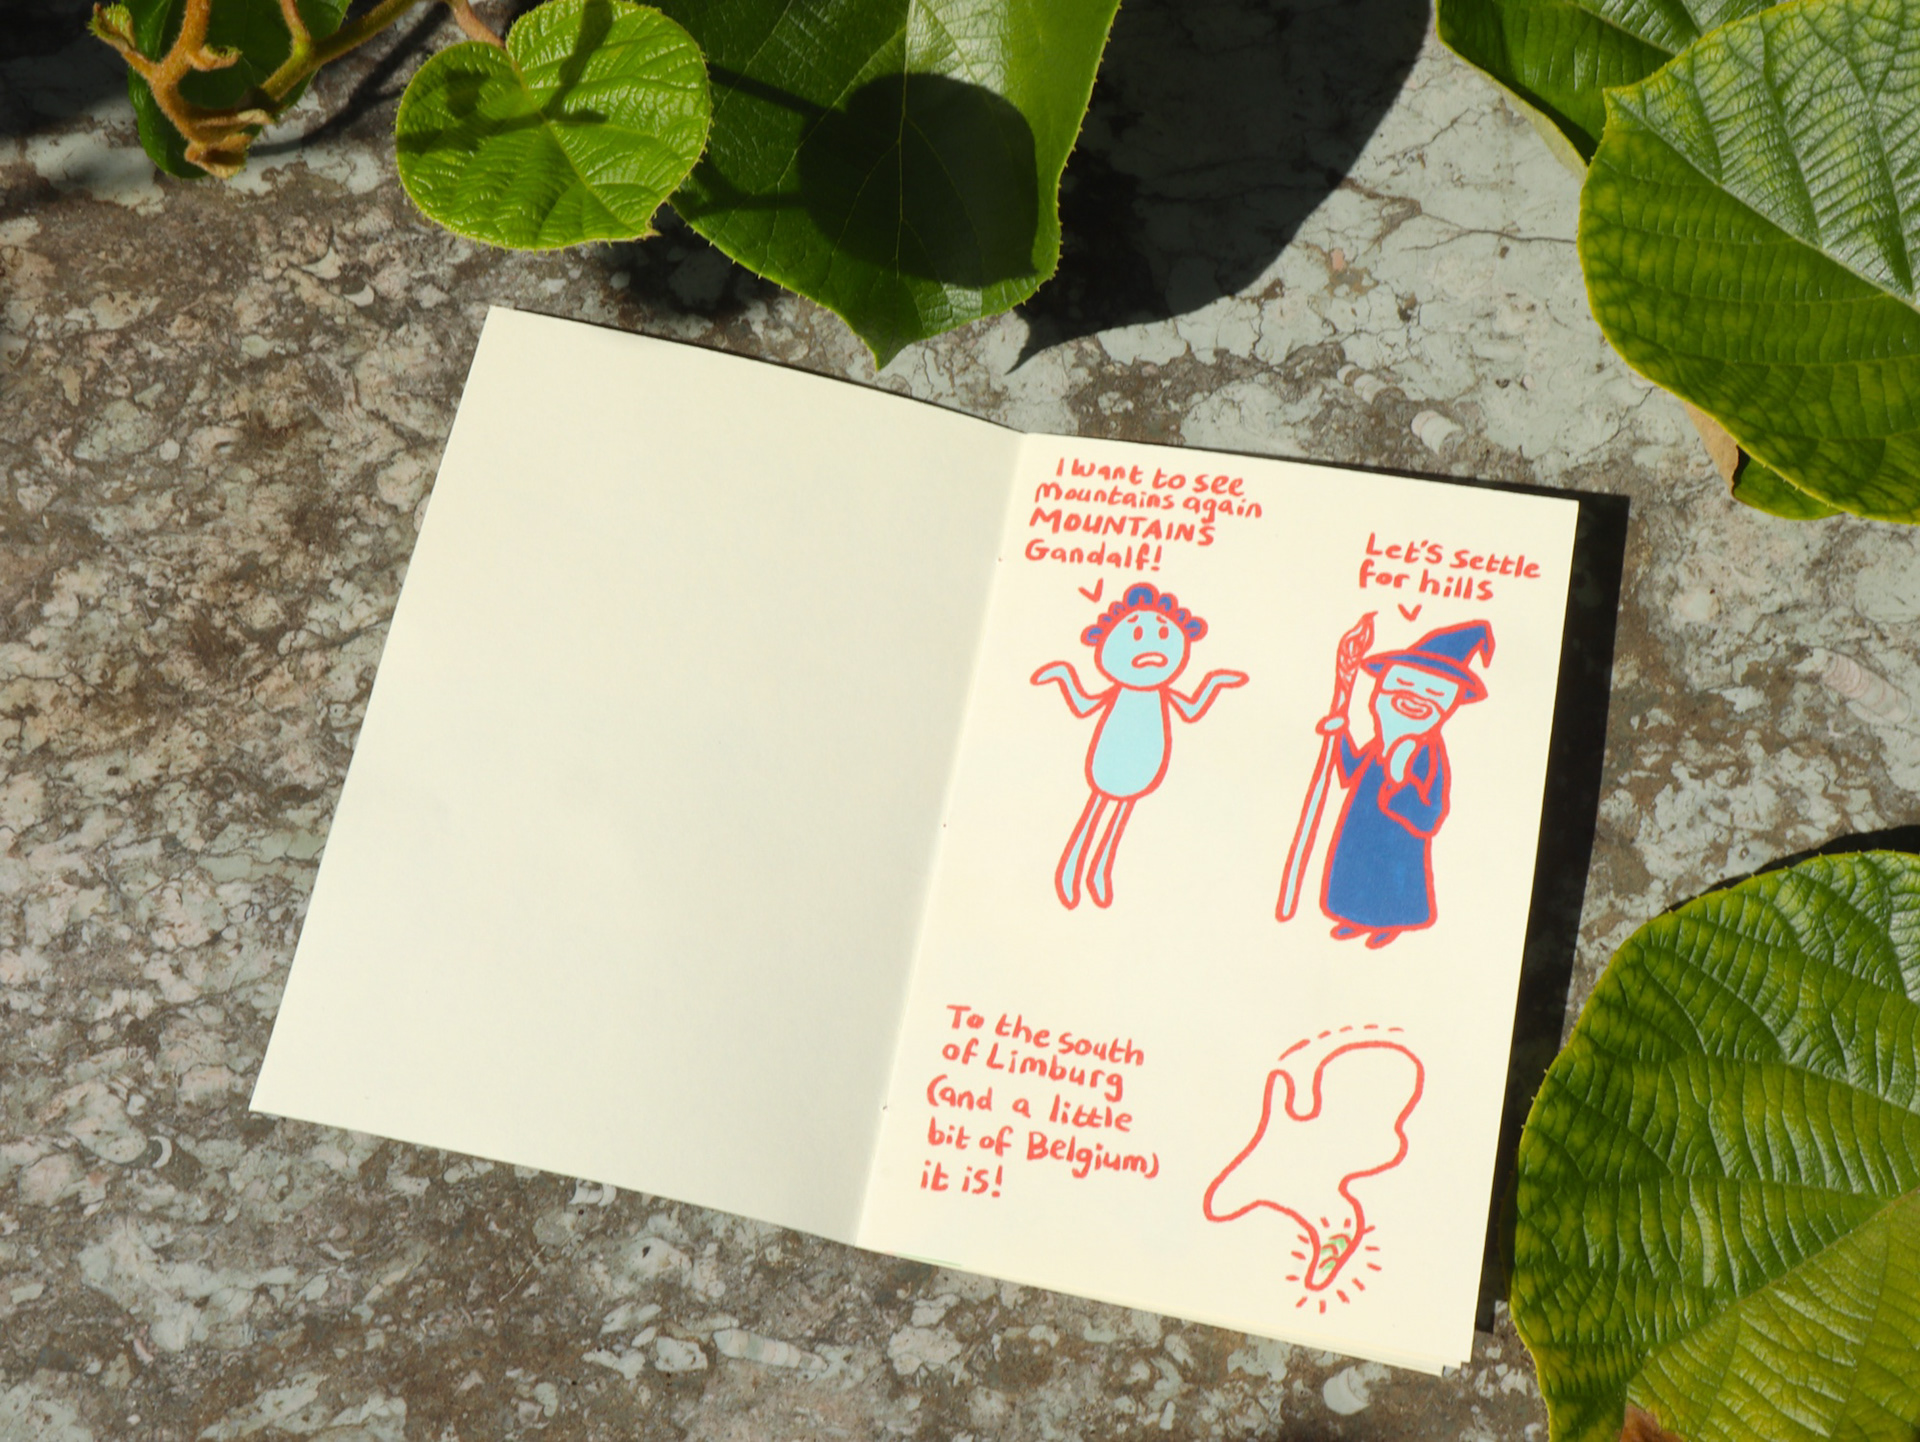 I want to see
mountains again
MOUNTAINS
Gandalf!
Let's settle
for hills
To the south
of Limburg
(and a little
bit of Belgium)
it is!